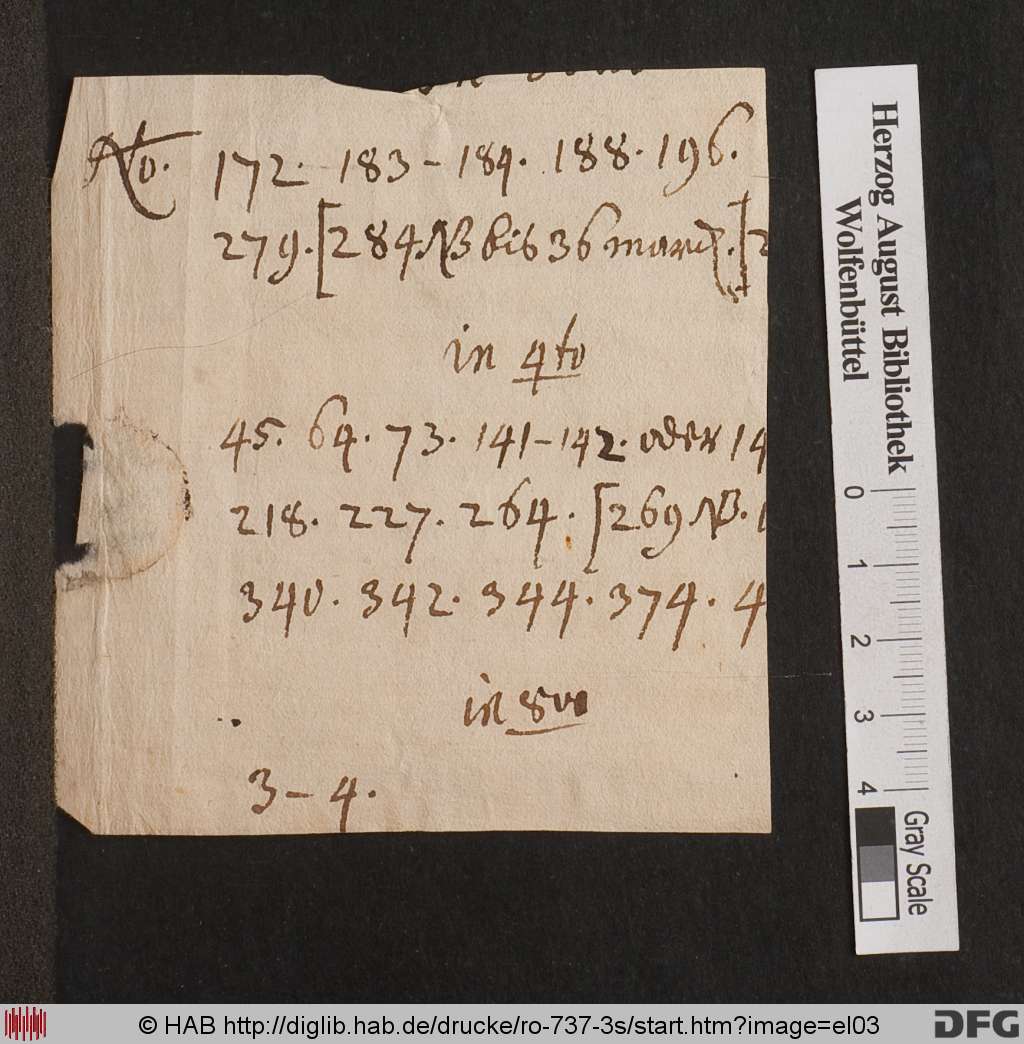 No. 172. 183 - 184. 188. 196.
279. [284 NB bis 36 març. ] 2
in 4to
45. 64. 73. 141 - 142. oder 14
218. 227. 264. [269 NB.
340. 342. 344. 374. 4
in 8vo
3 - 4.
Herzog August Bibliothek
Wolfenbüttel
0 1 2 3 4
Gray Scale
© HAB http://diglib.hab.de/drucke/ro-737-3s/start.htm?image=el03
DFG